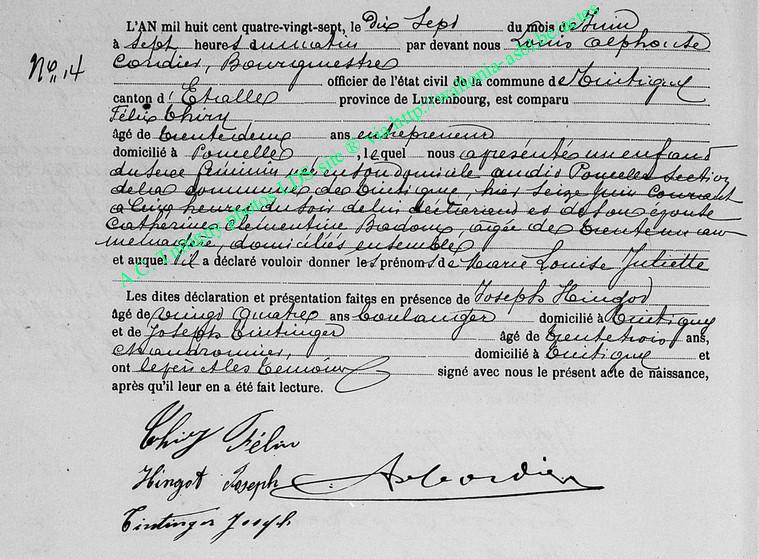 L'AN mil huit cent quatre-vingt-sept, le Dix Sept du mois de Juin
N° 14
à sept heures du matin par devant nous Louis Alphonse
Cordier, Bourgmestre
officier de l'état civil de la commune de Tintigny
canton d'Etalle province de Luxembourg, est comparu
Félix Thiry
âgé de trente deux ans entrepreneur
domicilié à Poncelle, lequel nous a présenté un enfant
du sexe féminin né en son domicile audit Poncelle section
de la commune de Tintigny, hier seize Juin courant
à cinq heures du soir de lui déclarant et de son épouse
Catherine Clémentine Badoux, agée de trente un ans
ménagère, domiciliés ensemble
et auquel il a déclaré vouloir donner les prénoms de Marie Louise Juliette
Les dites déclaration et présentation faites en présence de Joseph Hingot
âgé de vingt quatre ans boulanger domicilié à Tintigny
et de Joseph Tintinger âgé de trente trois ans,
domicilié à Tintigny et
ont le père et les témoins signé avec nous le présent acte de naissance,
après qu'il leur en a été fait lecture.
Thiry Félix
Hingot Joseph
Cordier
Tintinger Joseph
A.C. Tintigny photos LDS site ® via http://avalonia-asbl.be/actes